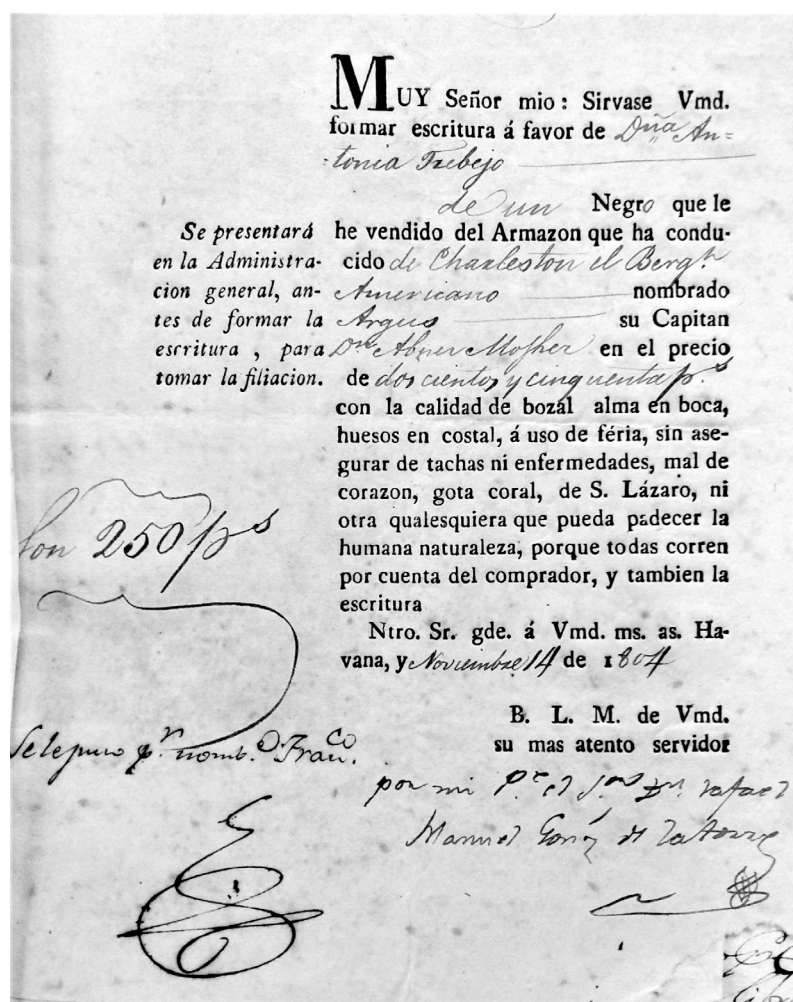 MUY Señor mio: Sirvase Vmd.
formar escritura á favor de Dña An=
tonia Trebejo
de un Negro que le
he vendido del Armazon que ha condu-
cido de Charleston el Bergn.
Americano nombrado
Argus su Capitan
Dn. Abner Mosher en el precio
de dos cientos y cinquenta ps.
con la calidad de bozál alma en boca,
huesos en costal, á uso de féria, sin ase-
gurar de tachas ni enfermedades, mal de
corazon, gota coral, de S. Lázaro, ni
otra qualesquiera que pueda padecer la
humana naturaleza, porque todas corren
por cuenta del comprador, y tambien la
escritura
Ntro. Sr. gde. á Vmd. ms. as. Ha-
vana, y Noviembre 14 de 1804
B. L. M. de Vmd.
su mas atento servidor
por mi Pe. el Sor. Dn. Rafael
Manuel de la Torre
Se presentará
en la Administra-
cion general, an-
tes de formar la
escritura, para
tomar la filiacion.
Son 250 ps
Se le puso pr. nomb. Franco.